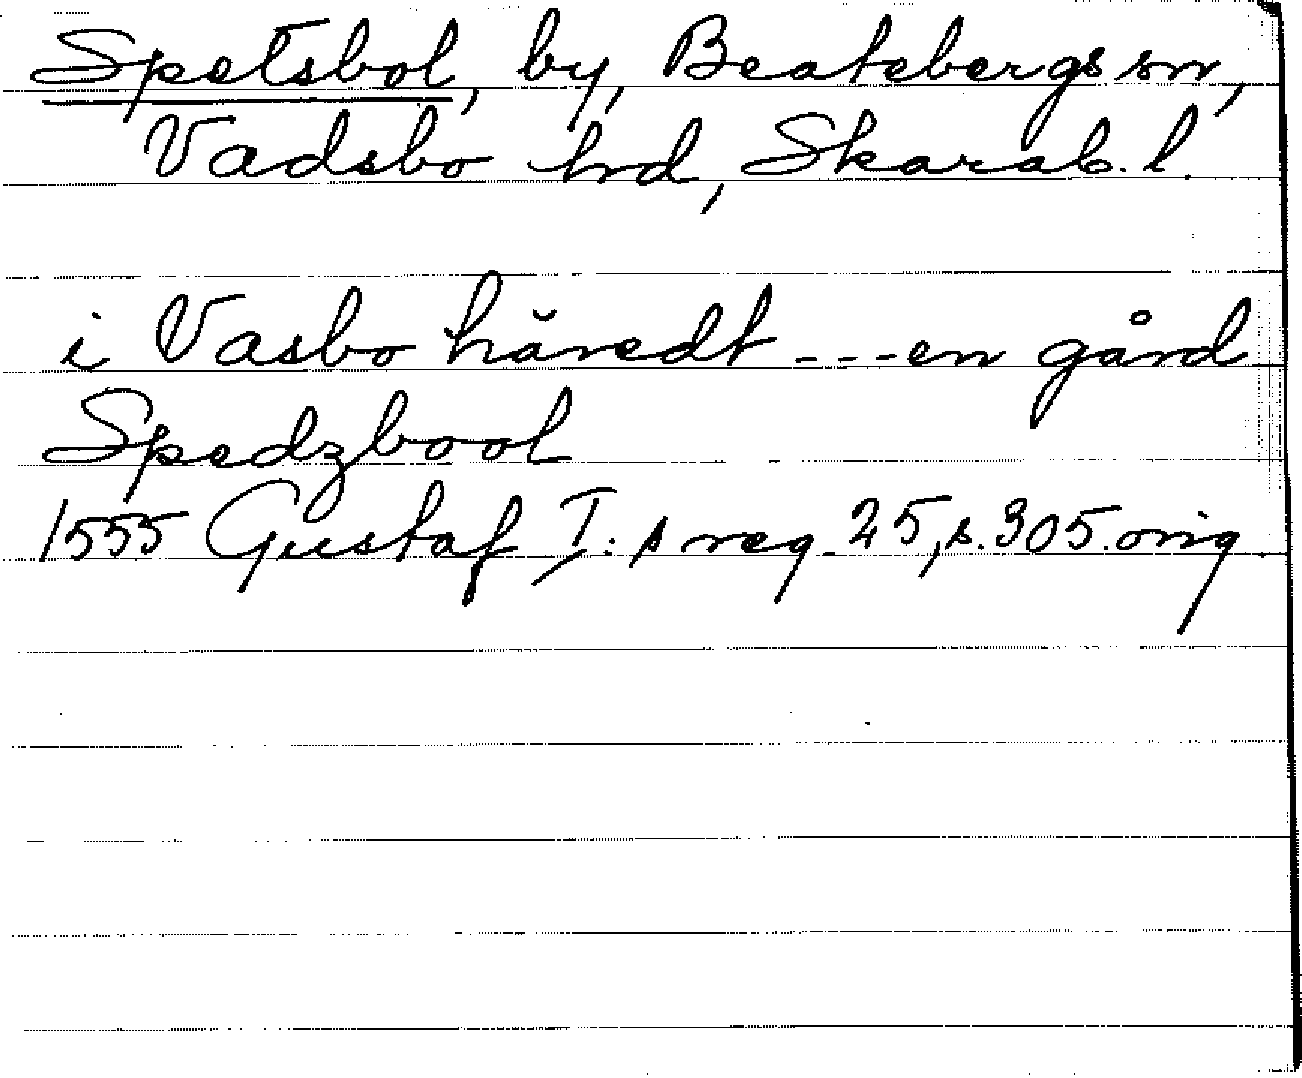 Spetsbol, by, Beatebergs sn,
Vadsbo hd, Skarab. l.
i Vasbo häredt --- en gård
Spedzbool
1555 Gustaf I: s reg. 25, s. 305. orig.